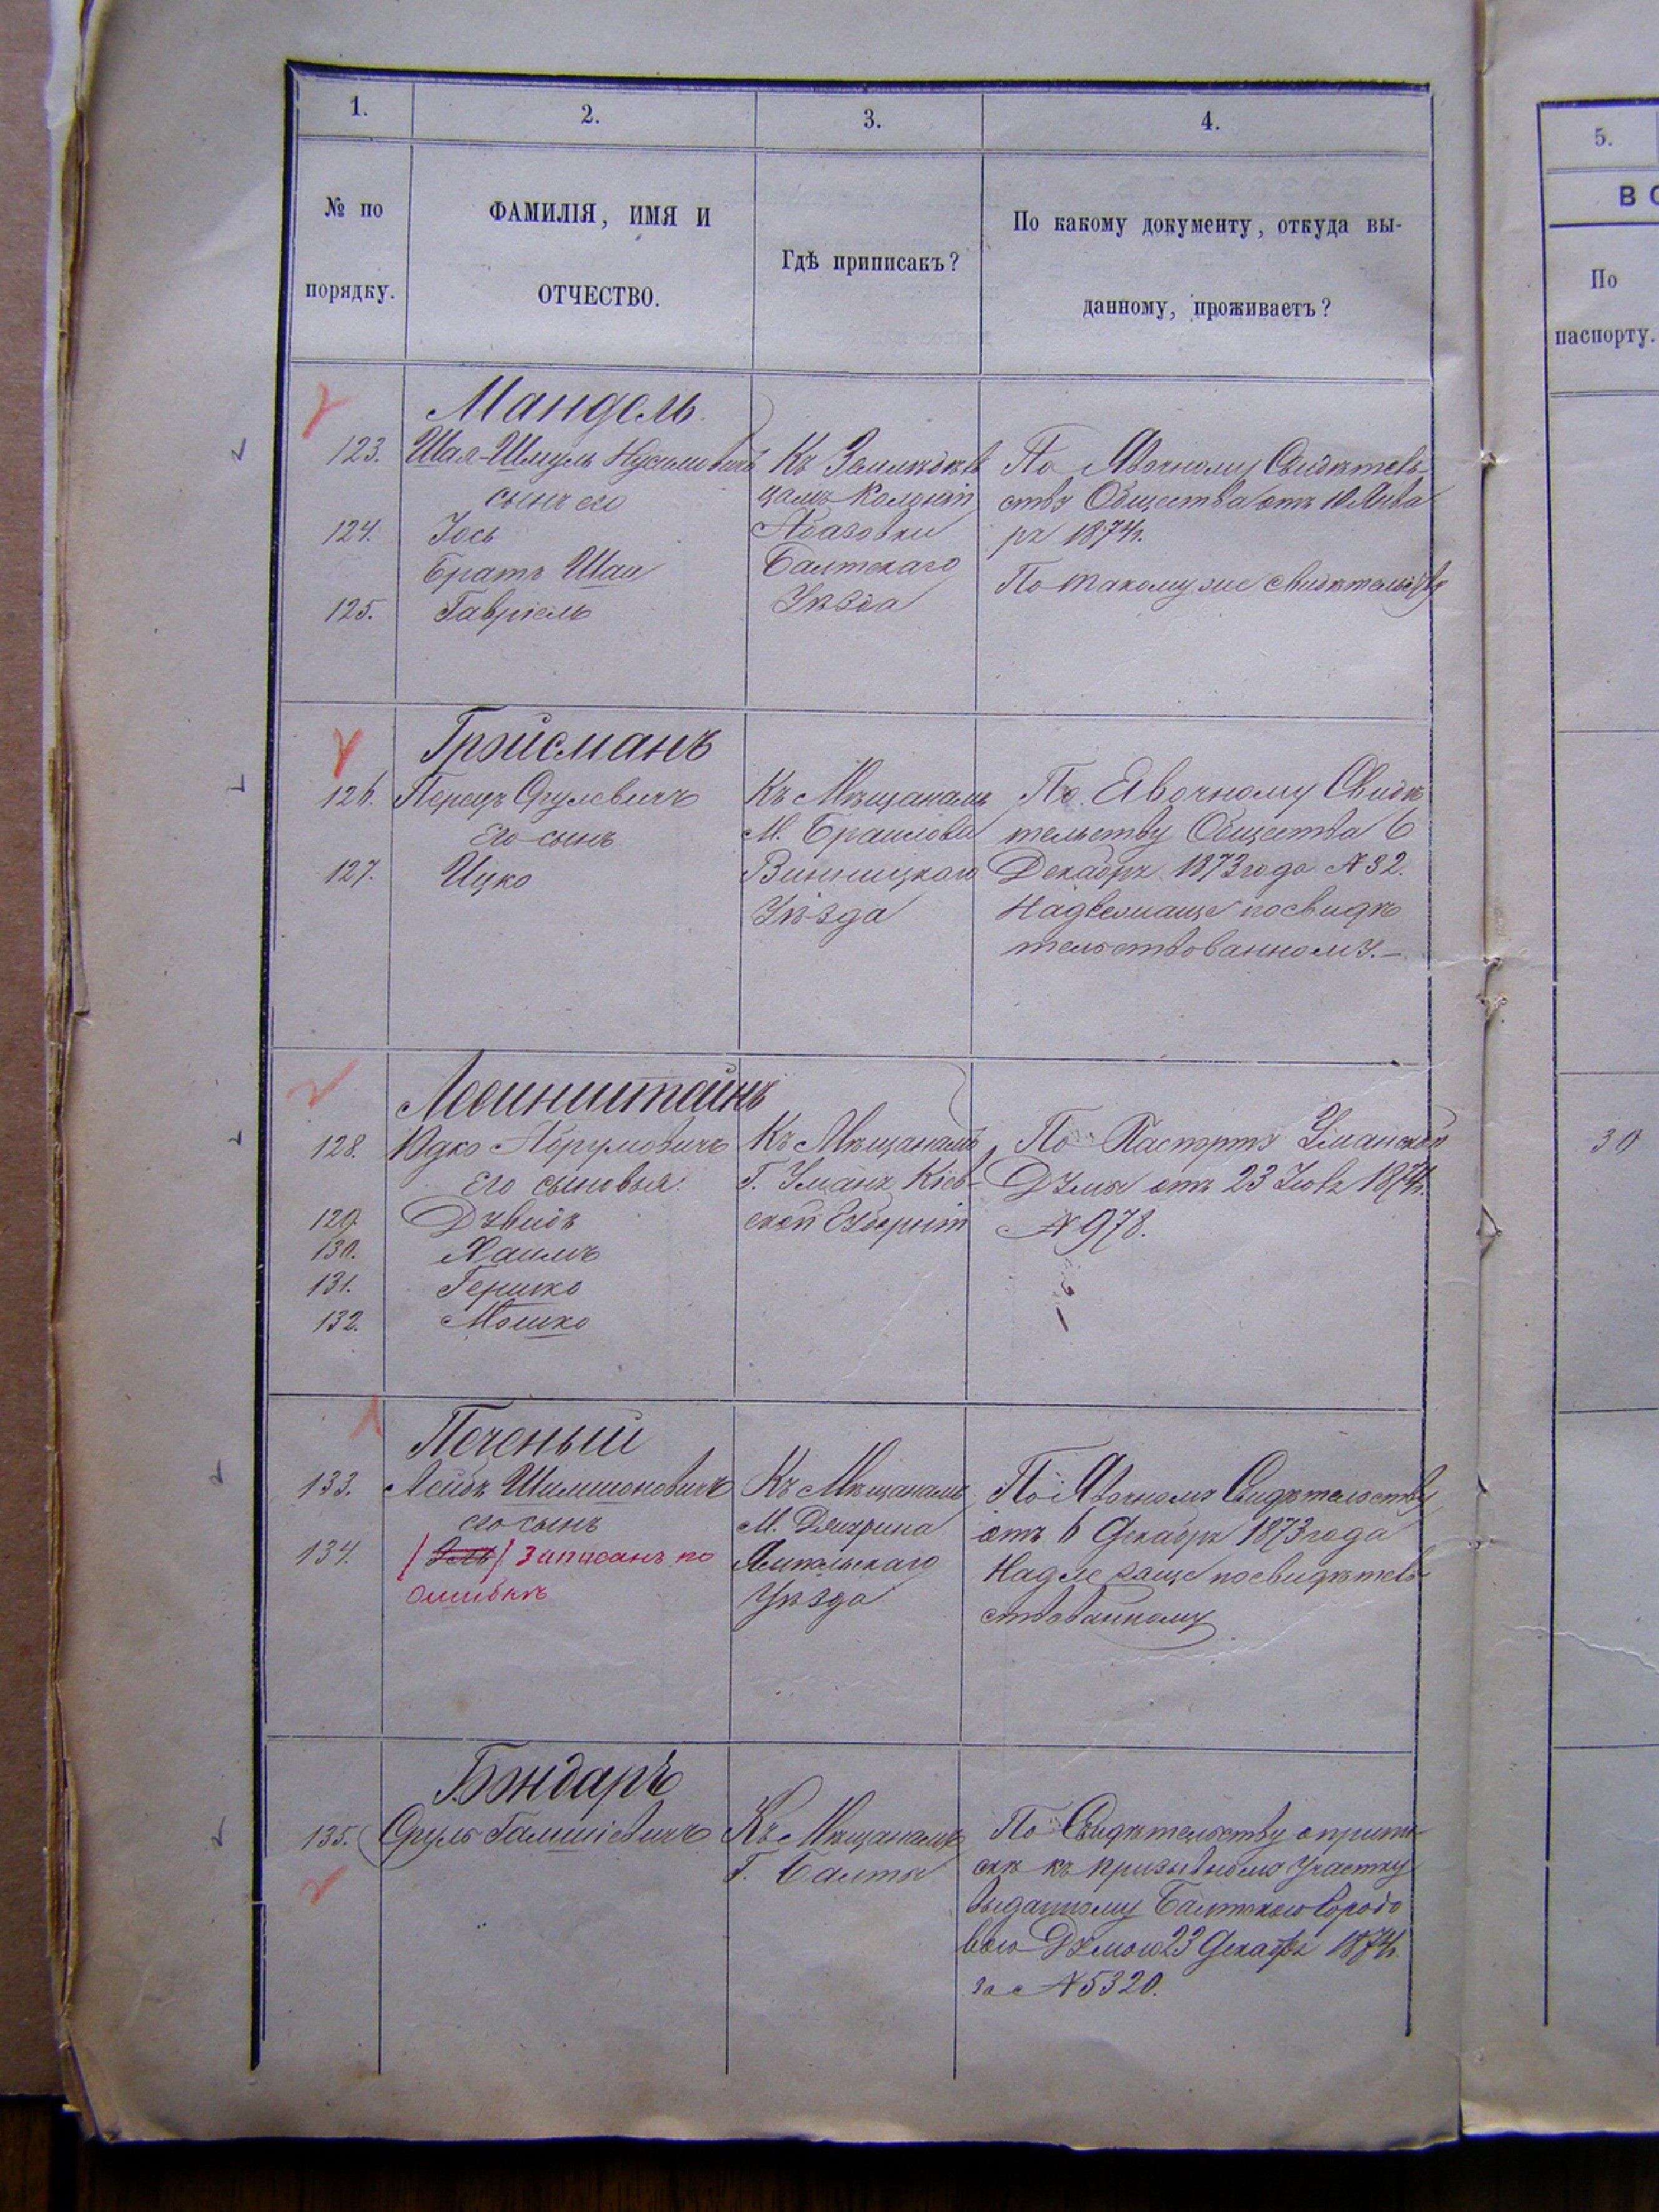 1.
2.
3.
4.
5.
№ по
порядку.
ФАМИЛІЯ, ИМЯ И
ОТЧЕСТВО.
Гдѣ приписакъ?
По какому документу, откуда вы-
данному, проживаетъ?
По
паспорту.
Мандель
123. Шая-Шмуль
сынъ его
124. Іось
братъ Шаи
125. Гавріель
Къ Земледѣл
цамъ Колоніи
Абазовки
Балтскаго
Уѣзда
По Явочному Свидѣтель
ству Общества отъ 10 Янва
ря 1874г.
По такому же свидѣтельству
Гройсманъ
126. Перецъ Срулевичъ
Его сынъ
127. Ицко
Къ Мѣщанамъ
М. Браилова
Винницкого
Уѣзда
По Явочному Свидѣ
тельству Общества 6
Декабря 1873 года №32.
Надлежаще посвидѣ
тельствованному.—
128. Юдко Абрумовичъ
Его сыновья
129. Дувидъ
130. Хаимъ
131. Гершко
132. Мошко
Къ Мѣщанамъ
Г. Уманя Кіев-
ской Губерніи
По Паспорту Уманской
Думы отъ 23 1874г.
№978.
30
Печеный
133. Лейбъ Шимшоновичъ
его сынъ
134. Записанъ по
ошибкѣ
Къ Мѣщанамъ
М.
Ямпольскаго
Уѣзда
По Явочному Свидѣтельству
отъ 6 Декабря 1873 года
Надлежаще посвидѣтель
ствованному
Бондарь
135. Сруль
Къ Мѣщанамъ
Г. Балты
По Свидѣтельству о припи-
скѣ къ призывному участку
выданному Балтскою Городо
вою Думою 23 Декабря 1874г.
за №5320.